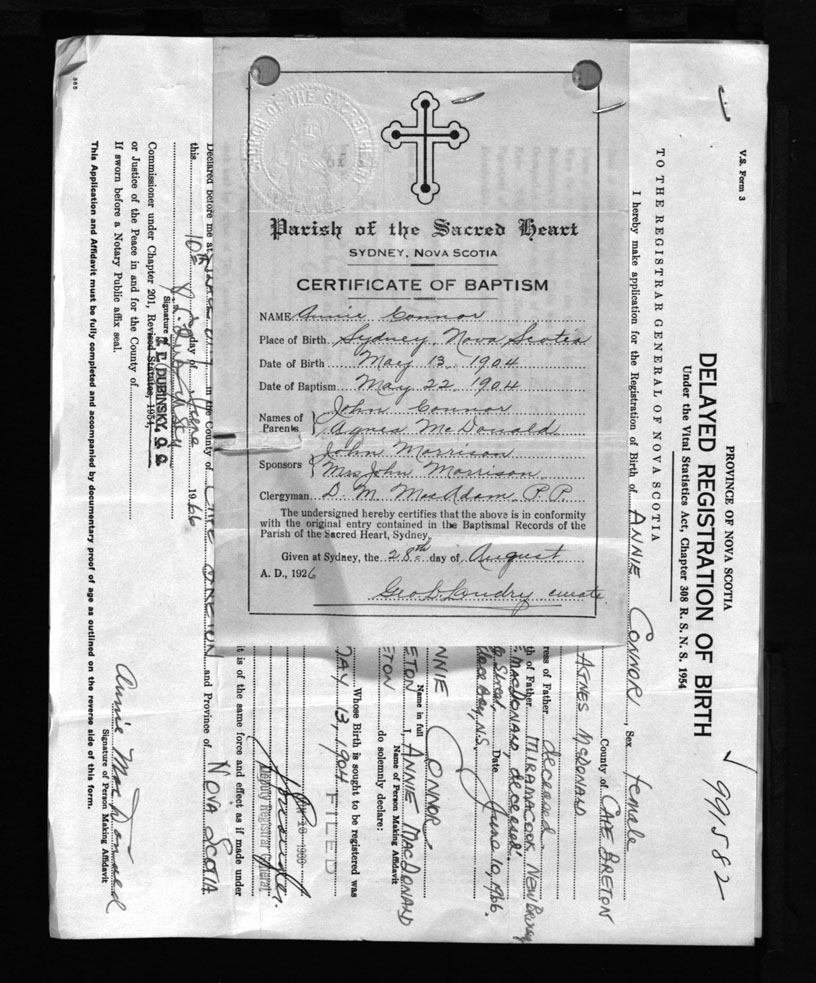 CHURCH OF THE SACRED HEART
Parish of the Sacred Heart
SYDNEY, NOVA SCOTIA
CERTIFICATE OF BAPTISM
NAME Annie Connor
Place of Birth Sydney, Nova Scotia
Date of Birth May 13, 1904
Date of Baptism May 22, 1904
Names of Parents John Connor
Agnes McDonald
Sponsors John Morrison
Mrs John Morrison
Clergyman D. M. MacAdam, P.P.
The undersigned hereby certifies that the above is in conformity
with the original entry contained in the Baptismal Records of the
Parish of the Sacred Heart, Sydney,
Given at Sydney, the 28th day of August
A. D., 1926
Geo. D. Landry curate
V.S. Form 3
PROVINCE OF NOVA SCOTIA
DELAYED REGISTRATION OF BIRTH
Under the Vital Statistics Act, Chapter 308 R. S. N. S. 1954
991582
TO THE REGISTRAR GENERAL OF NOVA SCOTIA
I hereby make application for the Registration of Birth of ANNIE CONNOR, Sex female
County of CAPE BRETON
AGNES McDONALD
ress of Father deceased
th of Father MIRAMACOOK, NEW
MacDONALD, deceased
Street,
GLACE BAY, N.S. Date June 10, 1966.
NNIE CONNOR
Name in full
ETON I, ANNIE MACDONALD
Name of Person Making Affidavit
ETON do solemnly declare:
Whose Birth is sought to be registered was
MAY 13, 1904 FILED
Deputy Registrar General
it is of the same force and effect as if made under
Declared before me at in the County of CAPE BRETON and Province of NOVA SCOTIA
this 10th day of June 1966
Signature
L. DUBINSKY, Q. C.
Commissioner under Chapter 201, Revised Statutes, 1954,
or Justice of the Peace in and for the County of
If sworn before a Notary Public affix seal.
Annie MacDonald
Signature of Person Making Affidavit
This Application and Affidavit must be fully completed and accompanied by documentary proof of age as outlined on the reverse side of this form.